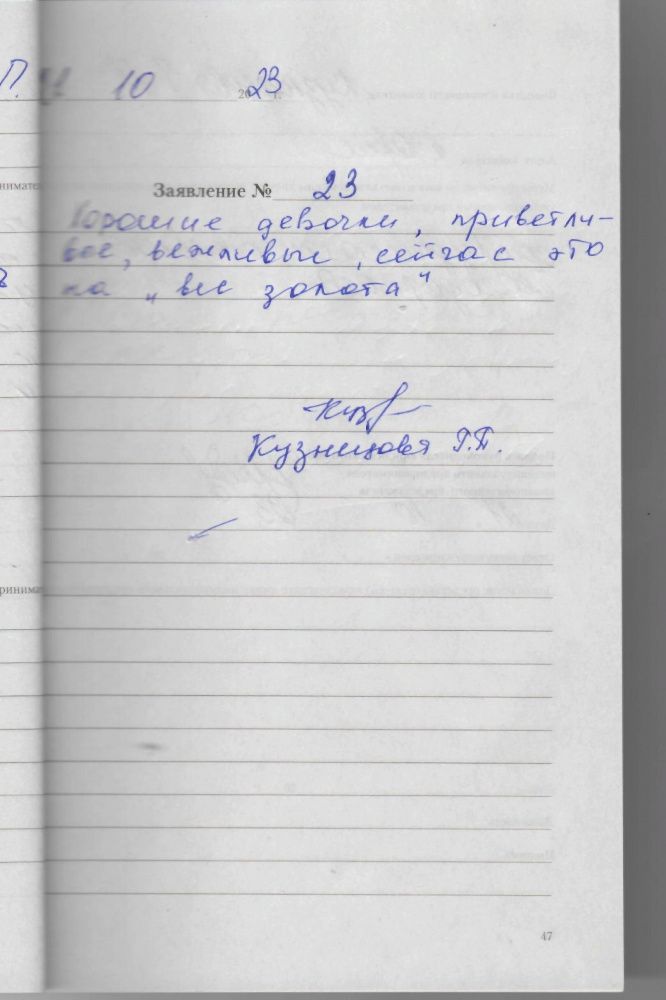 П.
10 2023 г.
нимате
Заявление № 23
Хорошие девочки, приветли-
вые, вежливые, сейчас это
на „вес золота"
Кузнецова Г.П.
ринима
47